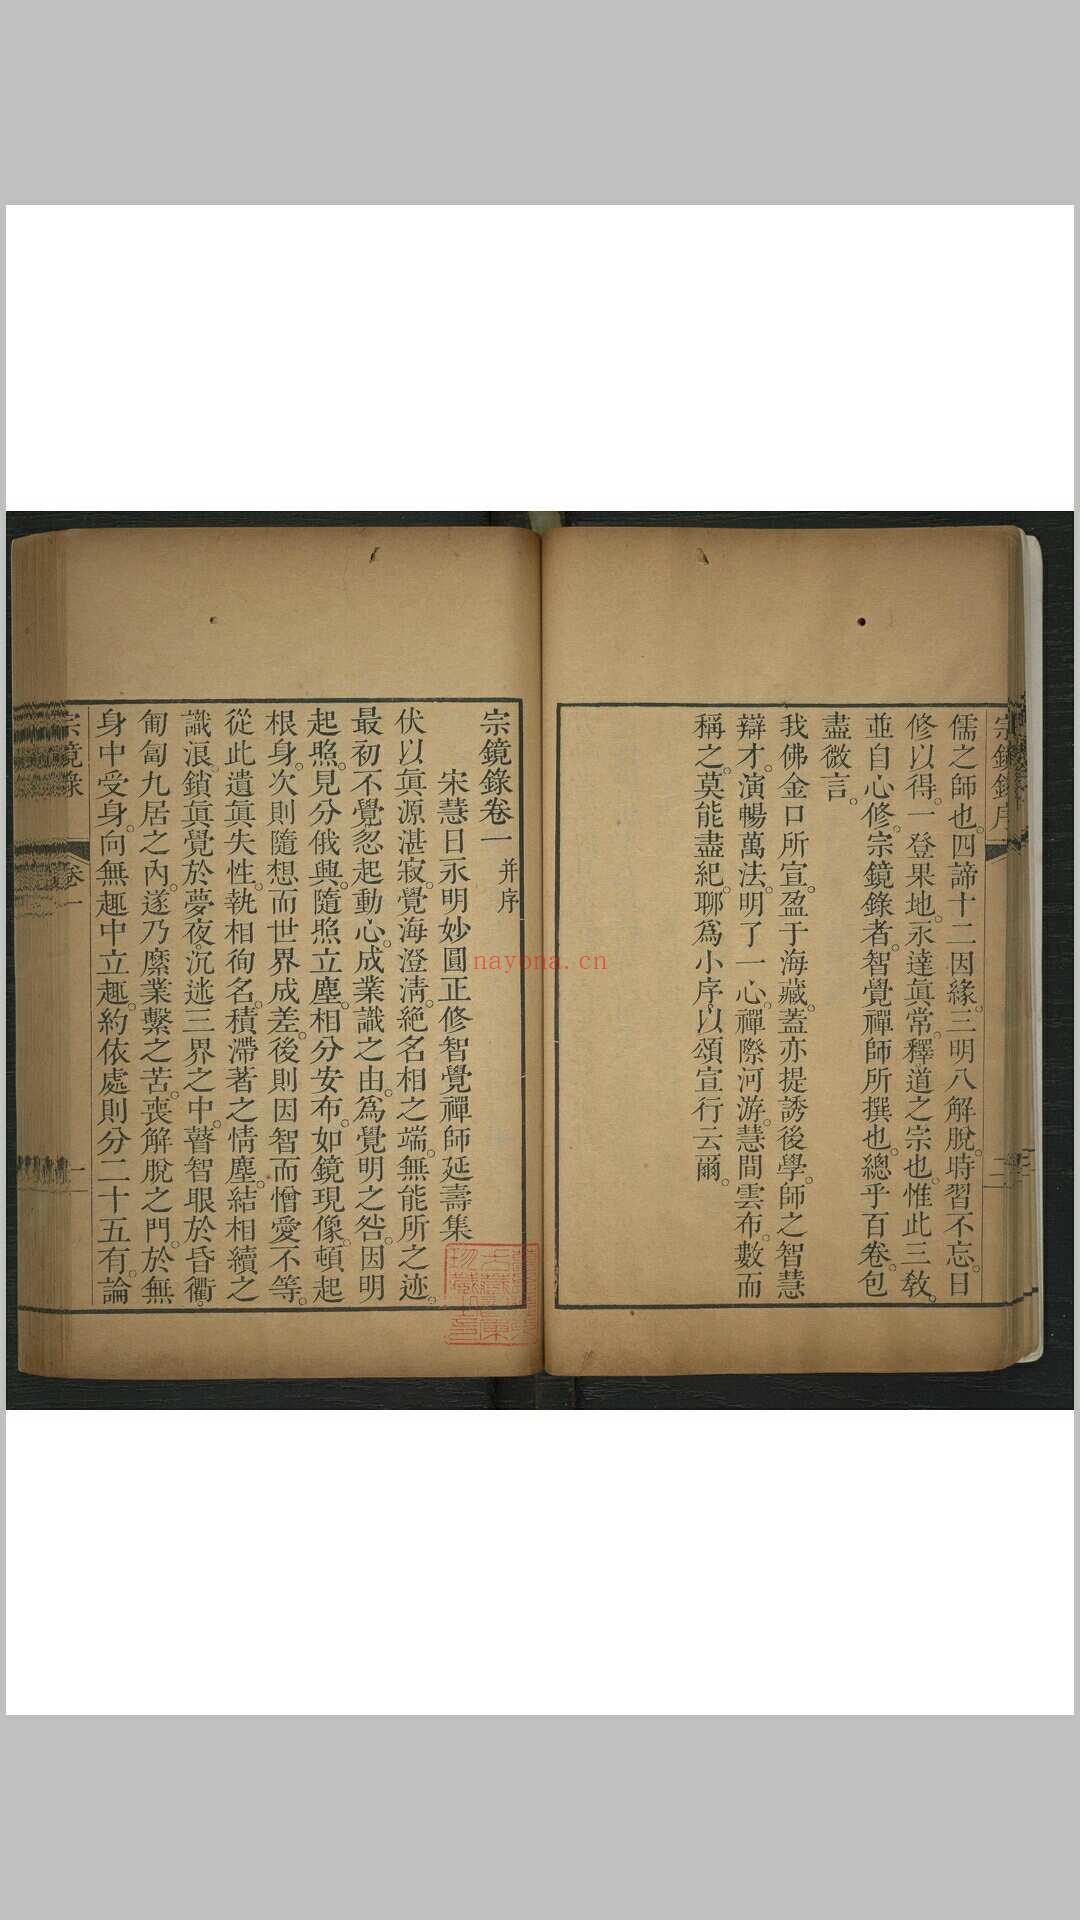 宗鏡錄序
儒之師也。四諦十二因緣。三明八解脫。時習不忘。日
修以得。一登果地。永達眞常。釋道之宗也。惟此三敎。
並自心修。宗鏡錄者。智覺禪師所撰也。總乎百卷。包
盡微言。
我佛金口所宣。盈于海藏。蓋亦提誘後學。師之智慧
辯才。演暢萬法。明了一心。禪際河游。慧間雲布。數而
稱之。莫能盡紀。聊爲小序。以頌宣行云爾。
宗鏡錄卷一 并序
宋慧日永明妙圓正修智覺禪師延壽集
伏以眞源湛寂。覺海澄淸。絕名相之端。無能所之迹。
最初不覺。忽起動心。成業識之由。爲覺明之咎。因明
起照。見分俄興。隨照立塵。相分安布。如鏡現像。頓起
根身。次則隨想而世界成差。後則因智而憎愛不等。
從此遺眞失性。執相徇名。積滯著之情塵。結相續之
識浪。鎖眞覺於夢夜。沉迷三界之中。瞽智眼於昏衢。
匍匐九居之內。遂乃縻業繫之苦。喪解脫之門。於無
身中受身。向無趣中立趣。約依處則分二十五有。論
宗鏡錄 卷一 一
nayona.cn